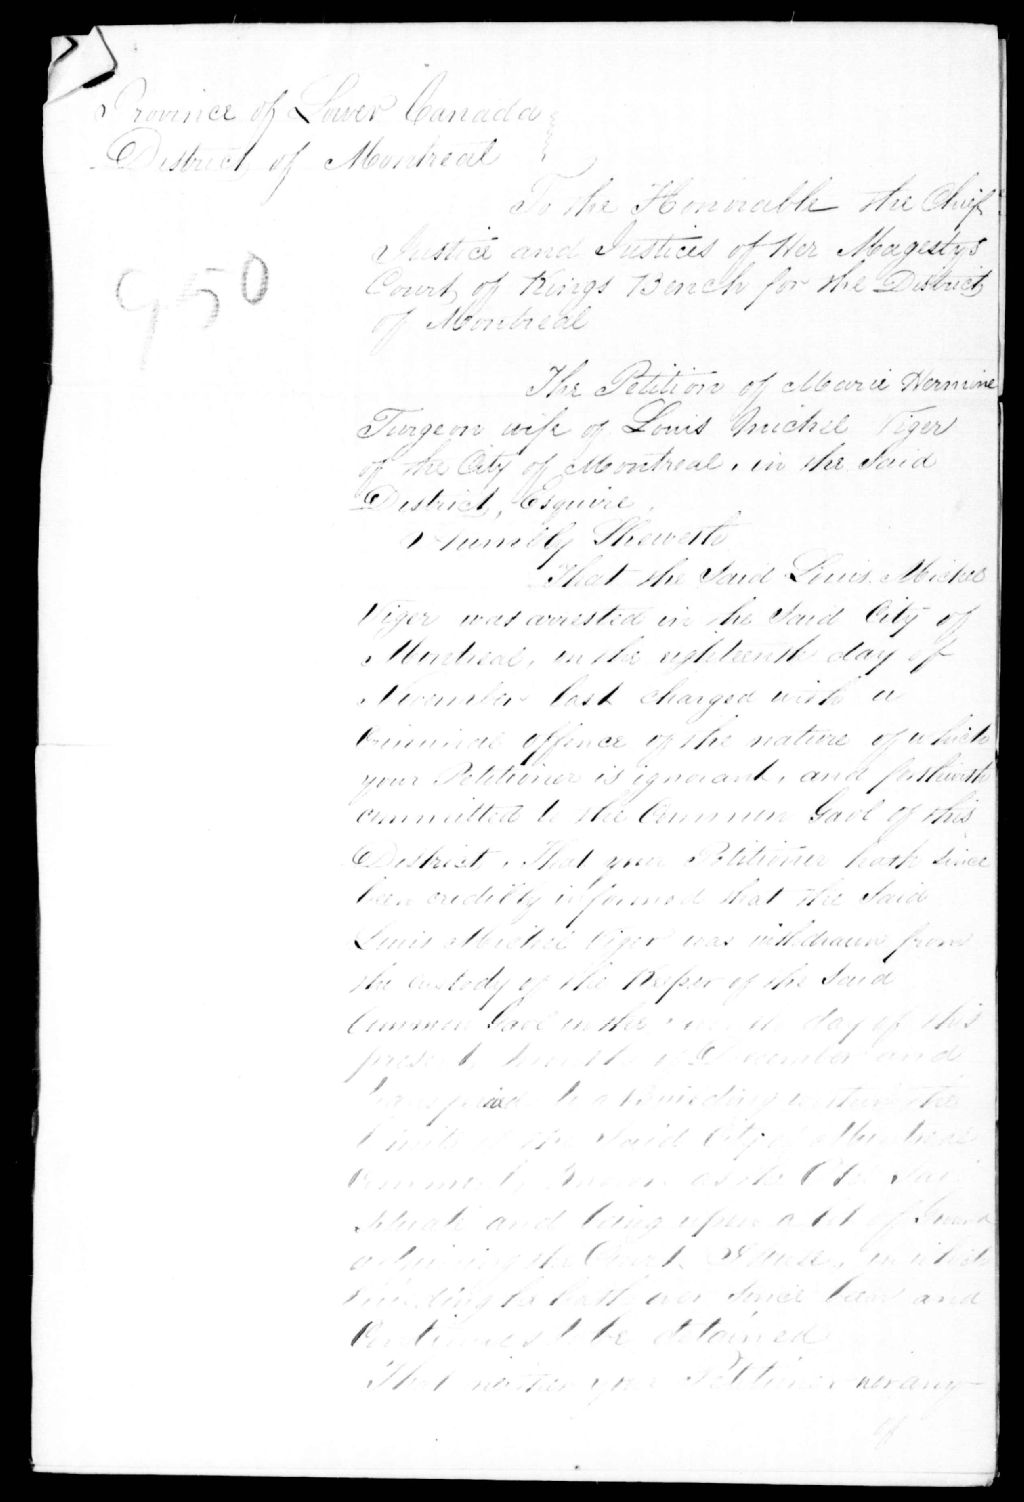 Province of Lower Canada
District of Montreal
To the Honorable the Chief
Justice and Justices of Her Magestys
Court of Kings Bench for the District
of Montreal
950
The Petition of Marie Hermine
Turgeon wife of Louis Michel Viger
of the City of Montreal, in the Said
District, Esquire,
Humbly Sheweth
That the Said Louis Michel
Viger was arrested in the Said City of
Montreal, in the eighteenth day of
November last charged with a
Criminal offence of the nature of which
your Petitioner is ignorant, and forthwith
committed to the Common Gaol of this
District, That your Petitioner hath since
been credibly informed that the Said
Louis Michel Viger was withdrawn from
the custody of the Keeper of the Said
Common Gaol in the day of this
present month of December and
to a Building within the
limits of the Said City of Montreal
Commonly Known as the Old Gaol
Situate and being upon a lot of Ground
adjoining the Court House, in which
building he hath ever since been and
Continues to be detained
That neither your Petitioner nor any
of